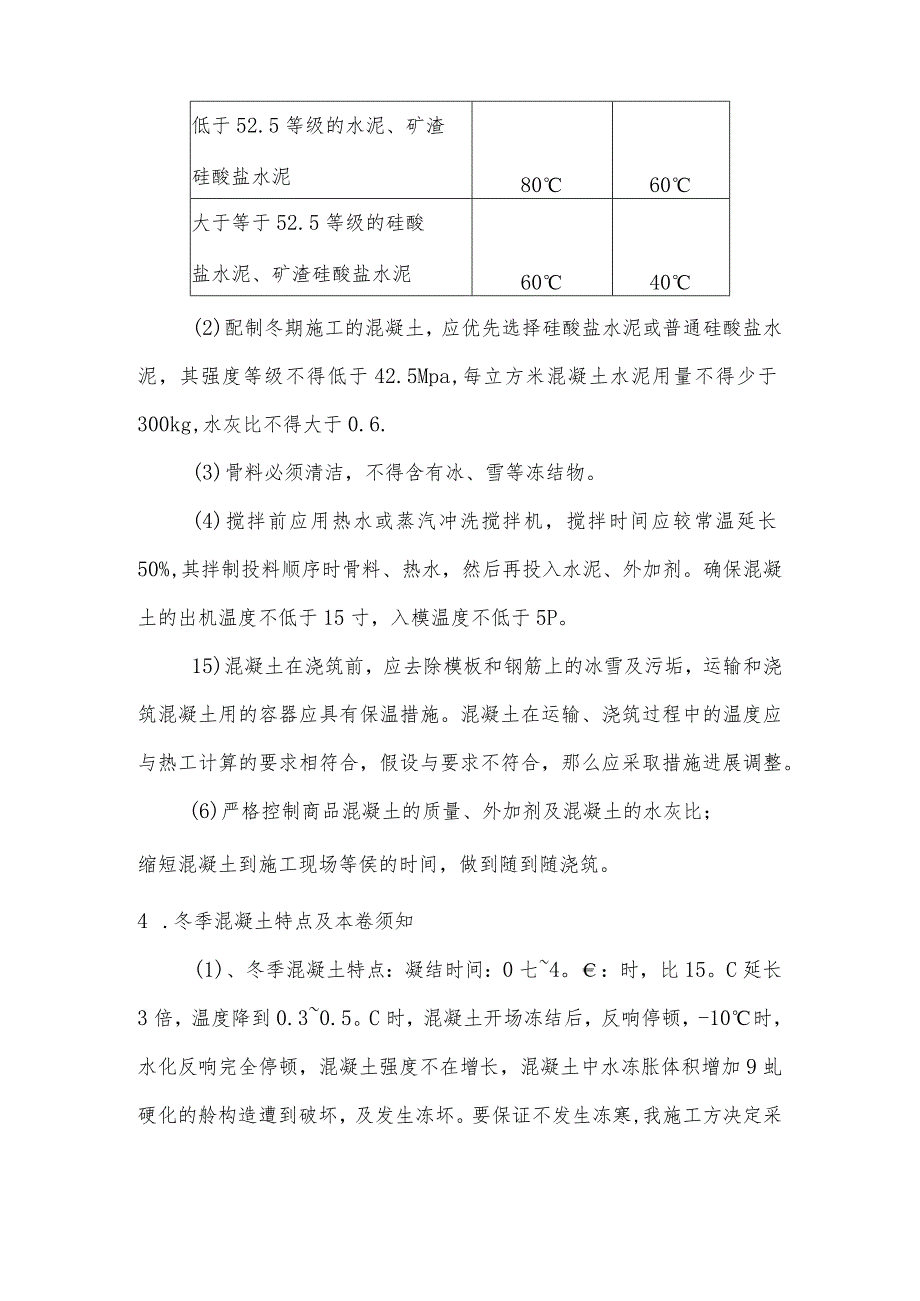 低于52.5等级的水泥、矿渣
硅酸盐水泥 80℃ 60℃
大于等于52.5等级的硅酸
盐水泥、矿渣硅酸盐水泥 60℃ 40℃
(2)配制冬期施工的混凝土，应优先选择硅酸盐水泥或普通硅酸盐水
泥，其强度等级不得低于42.5Mpa,每立方米混凝土水泥用量不得少于
300kg,水灰比不得大于0.6.
(3)骨料必须清洁，不得含有冰、雪等冻结物。
(4)搅拌前应用热水或蒸汽冲洗搅拌机，搅拌时间应较常温延长
50%,其拌制投料顺序时骨料、热水，然后再投入水泥、外加剂。确保混凝
土的出机温度不低于15寸，入模温度不低于5P。
15)混凝土在浇筑前，应去除模板和钢筋上的冰雪及污垢，运输和浇
筑混凝土用的容器应具有保温措施。混凝土在运输、浇筑过程中的温度应
与热工计算的要求相符合，假设与要求不符合，那么应采取措施进展调整。
(6)严格控制商品混凝土的质量、外加剂及混凝土的水灰比；
缩短混凝土到施工现场等侯的时间，做到随到随浇筑。
4 .冬季混凝土特点及本卷须知
(1)、冬季混凝土特点：凝结时间：0七~4。€：时，比15。C延长
3倍，温度降到0.3~0.5。C时，混凝土开场冻结后，反响停顿，-10℃时，
水化反响完全停顿，混凝土强度不在增长，混凝土中水冻胀体积增加9虬
硬化的舱构造遭到破坏，及发生冻坏。要保证不发生冻寒,我施工方决定采